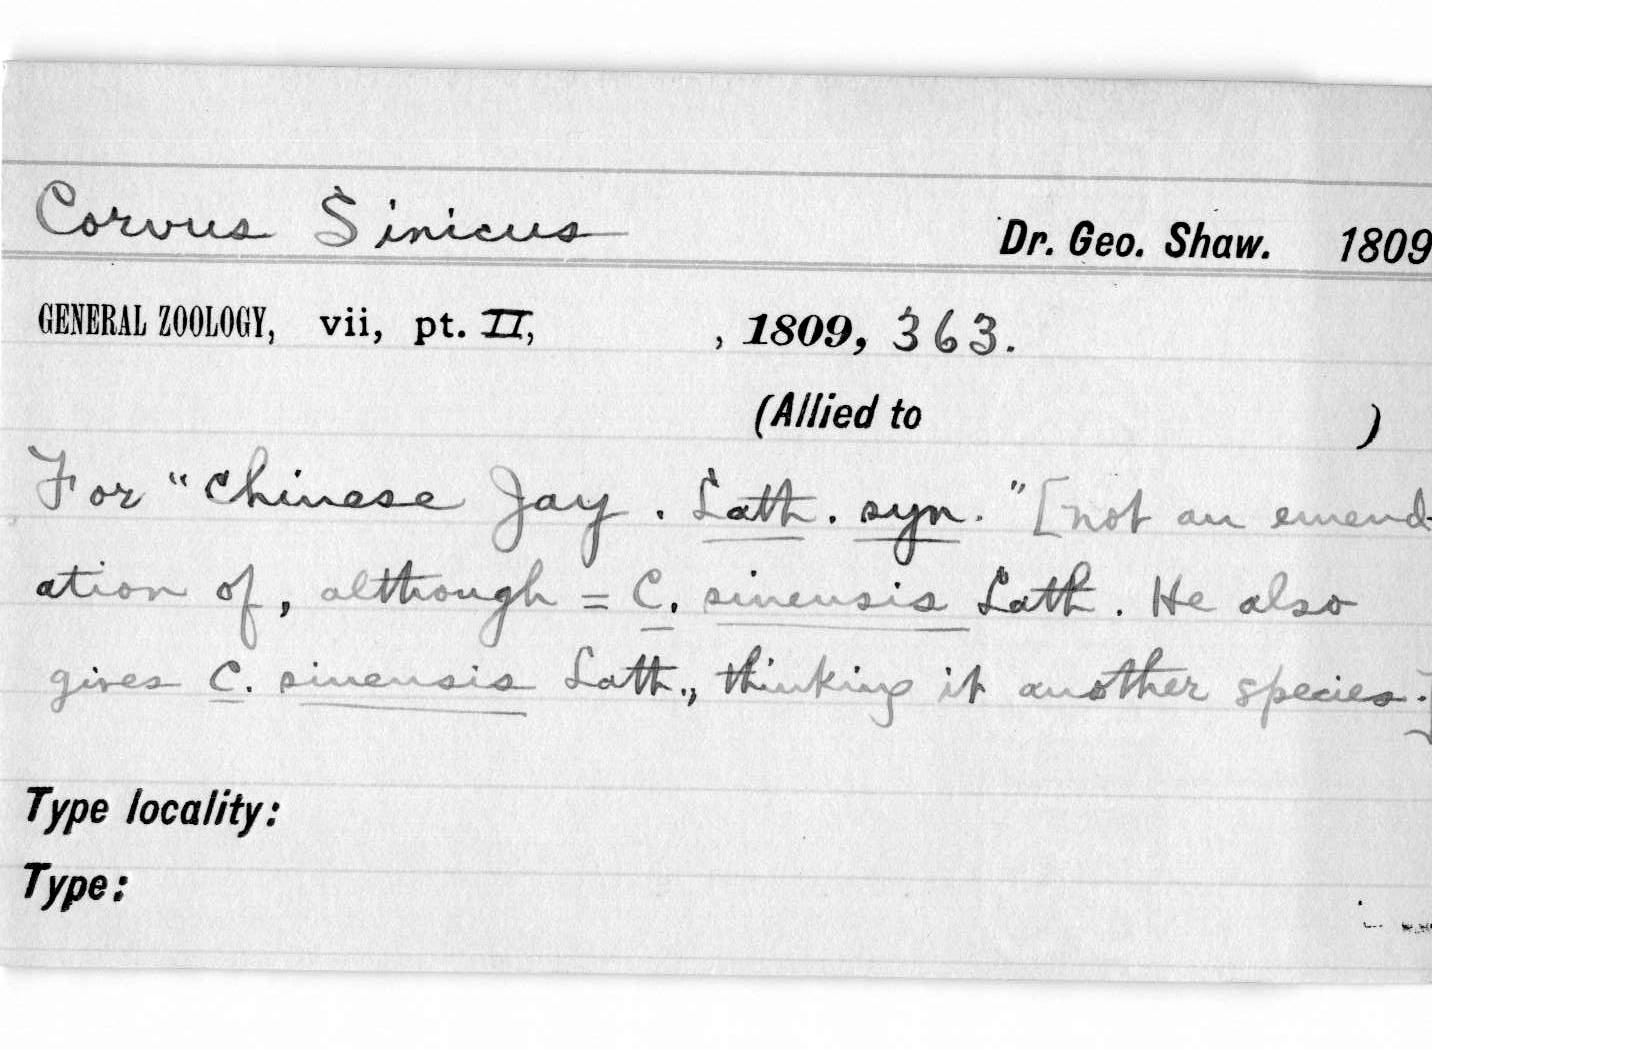 Corvus Sinicus Dr. Geo. Shaw. 1809
GENERAL ZOOLOGY, vii, pt. II, , 1809, 363.
(Allied to )
For "Chinese Jay. Lath. syn." [not an emend-
ation of, although = C. sinensis Lath. He also
gives C. sinensis Lath., thinking it another species.]
Type locality:
Type: